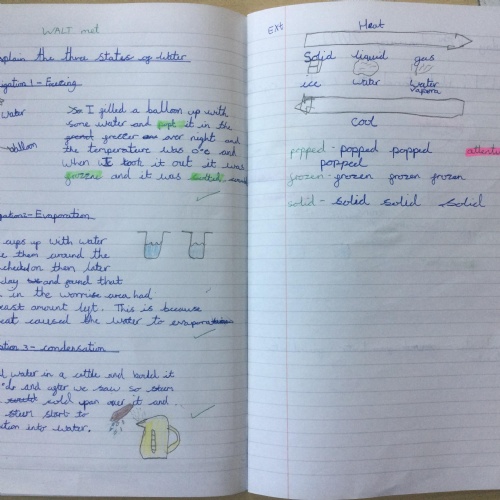 WALT met
explain the three states of water
igation 1 - Freezing
Water
balloon
So I filled a balloon up with
some water and popt it in the
freezer over night and
the temperature was 0°c and
when I took it out it was
frozene and it was
igation2- Evaporation
cups up with water
them around the
checked on them later
day and found that
in the warmer area had
least amount left. This is because
heat caused the water to evaporate
ation 3 - condensation
water in a cettle and boild it
and after we saw so
cold upan over it and
steen start to
tion into water.
Ext
Heat
Solid liquid gas
ice water water
vapora
Cool
popped - popped popped
popped
frozen - frozen frozen frozen
solid - solid solid solid